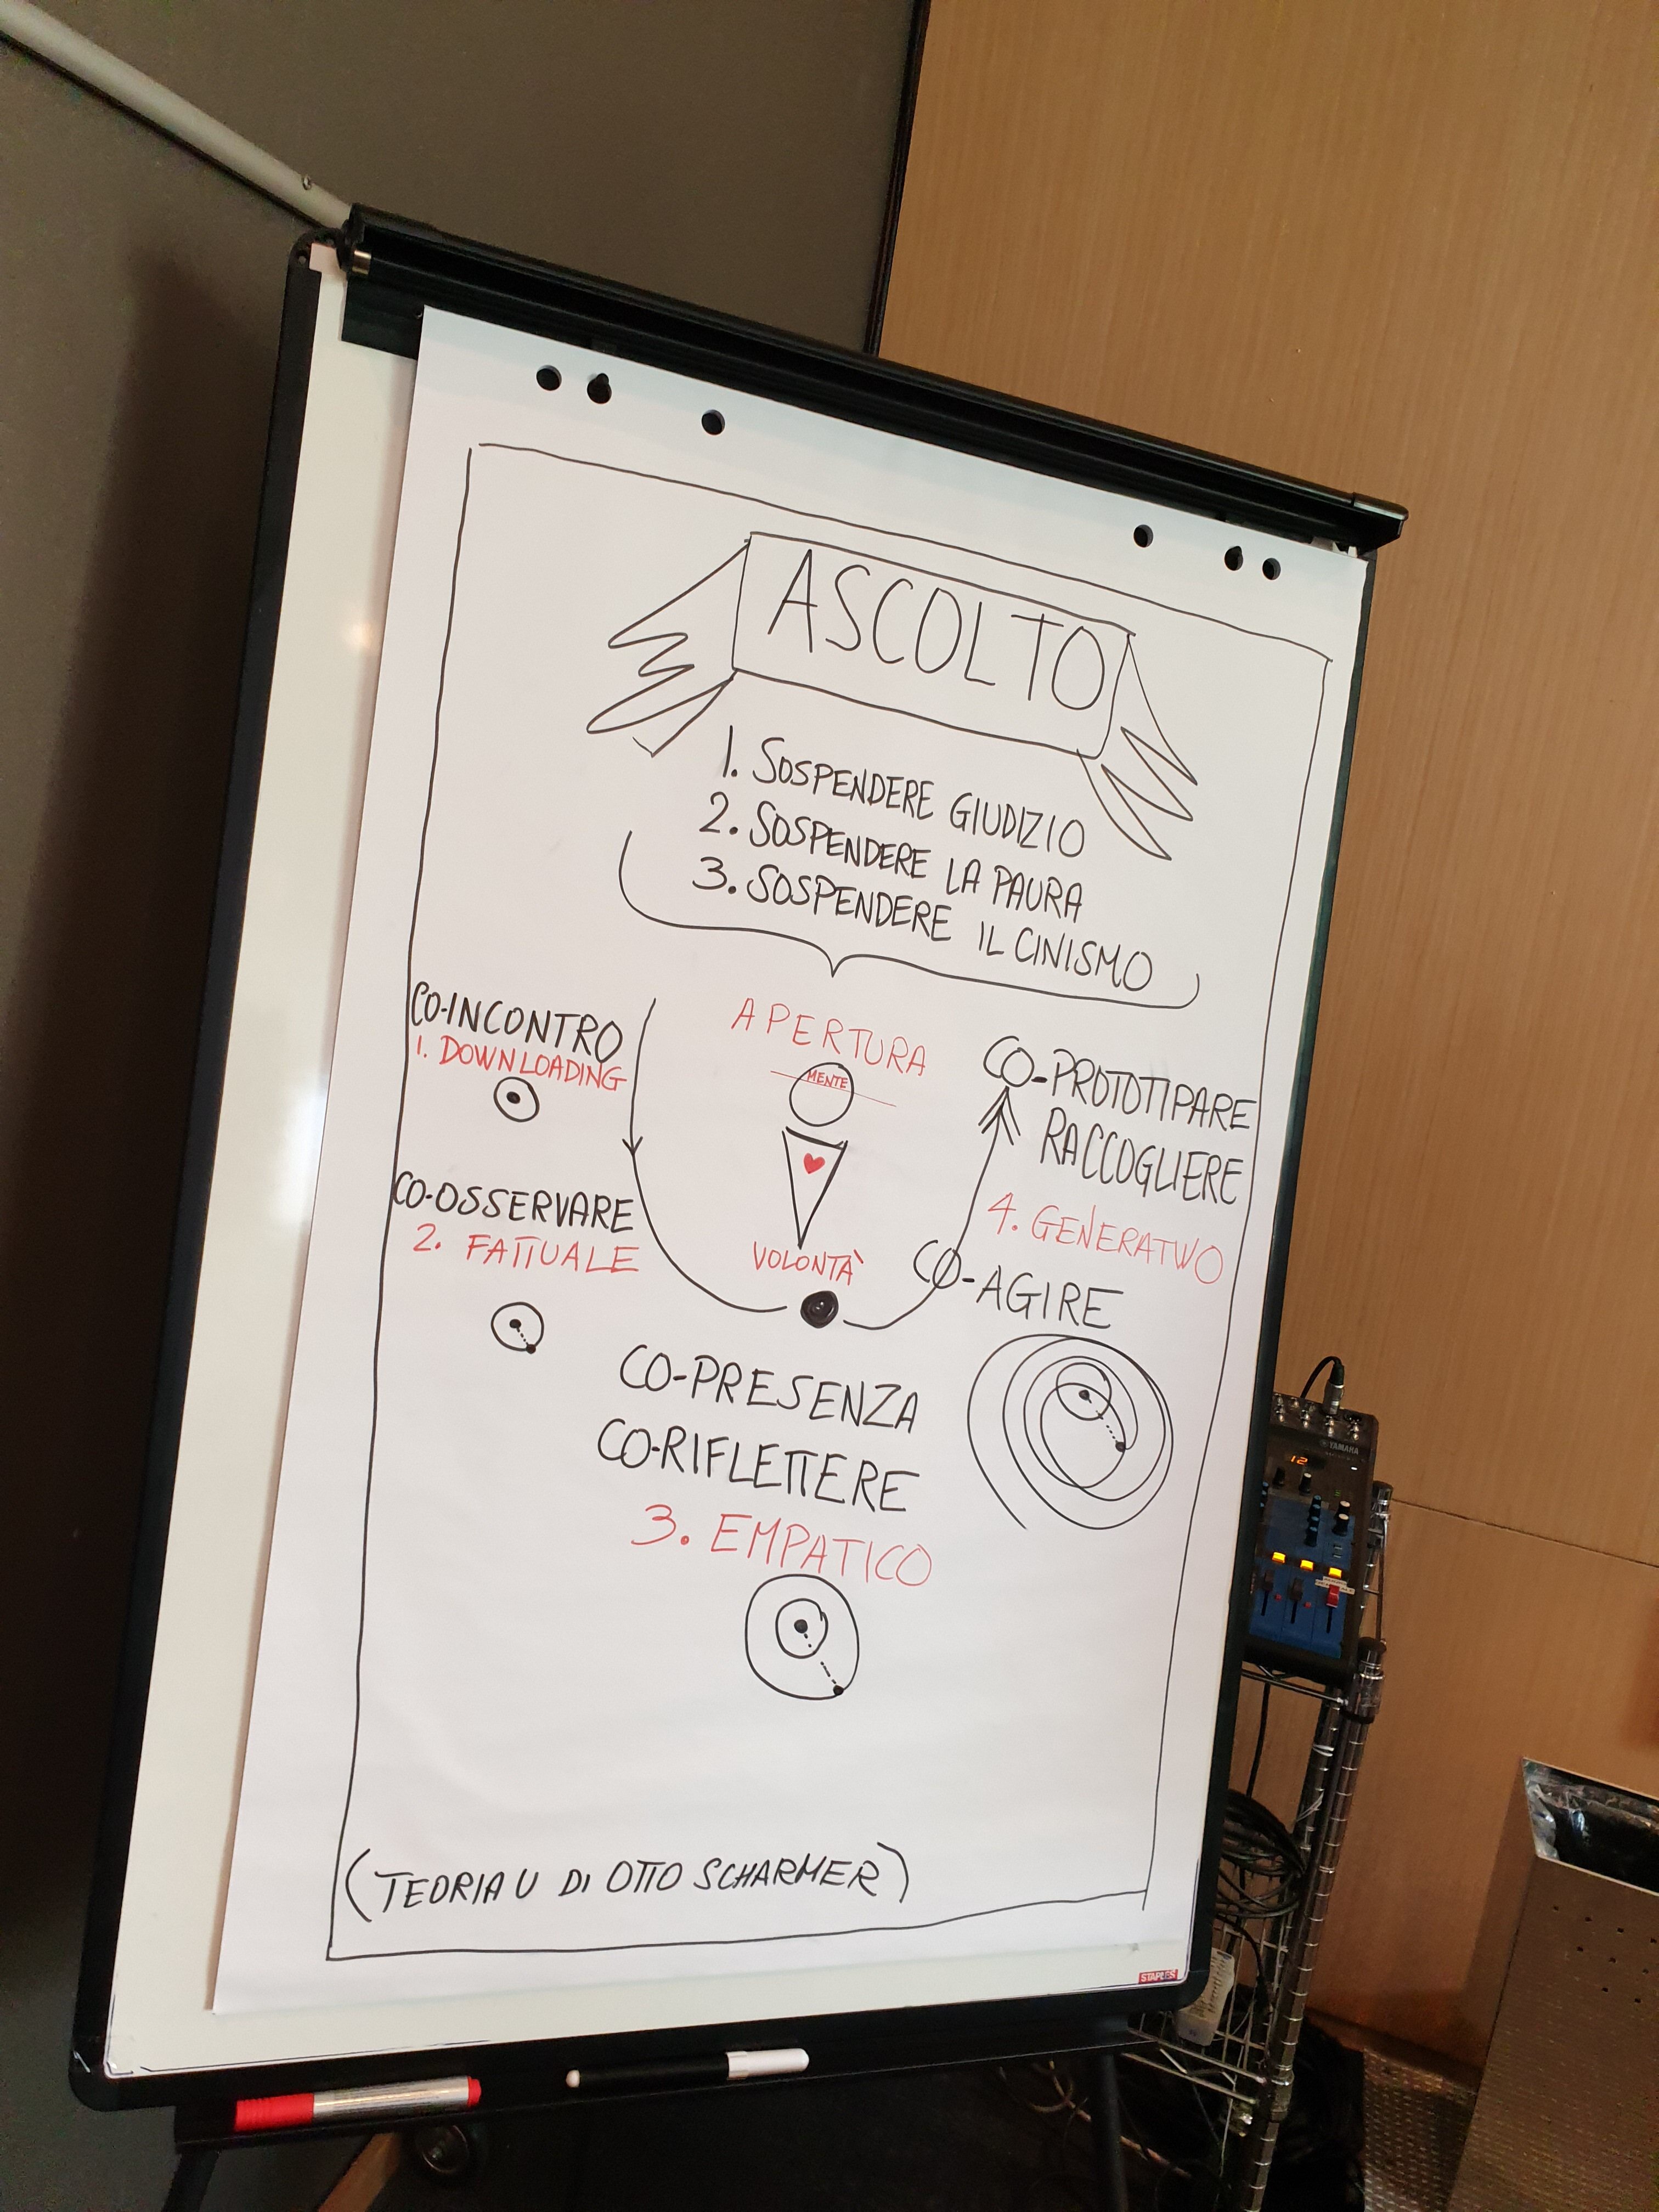 ASCOLTO
1. SOSPENDERE GIUDIZIO
2. SOSPENDERE LA PAURA
3. SOSPENDERE IL CINISMO
CO-INCONTRO
1. DOWNLOADING
CO-OSSERVARE
2. FATTUALE
APERTURA
MENTE
VOLONTÀ
CO-PROTOTIPARE
RACCOGLIERE
4. GENERATIVO
CO-AGIRE
CO-PRESENZA
CO-RIFLETTERE
3. EMPATICO
(TEORIA U DI OTTO SCHARMER)
STAPLES
YAMAHA
12